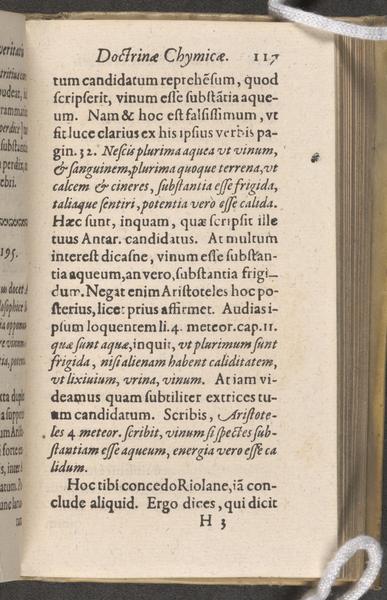 Doctrinæ Chymicæ. 117
tum candidatum reprehẽsum, quod
scripserit, vinum esse substãtia aque-
um. Nam & hoc est falsissimum, vt
fit luce clarius ex his ipsius verbis pa-
gin. 32. Nescis plurima aquea vt vinum,
& sanguinem, plurima quoque terrena, vt
calcem & cineres, substantia esse frigida,
taliaque sentiri, potentia vero esse calida.
Hæc sunt, inquam, quæ scripsit ille
tuus Antar. candidatus. At multum
interest dicasne, vinum esse substan-
tia aqueum, an vero, substantia frigi-
dum. Negat enim Aristoteles hoc po-
sterius, licet prius affirmet. Audias i-
psum loquentem li. 4. meteor. cap. 11.
quæ sunt aquæ, inquit, vt plurimum sunt
frigida, nisi alienam habent caliditatem,
vt lixiuium, vrina, vinum. At iam vi-
deamus quam subtiliter extrices tu-
um candidatum. Scribis, Aristote-
les 4 meteor. scribit, vinum si spectes sub-
stantiam esse aqueum, energia vero esse ca
lidum.
Hoc tibi concedo Riolane, iã con-
clude aliquid. Ergo dices, qui dicit
H 3